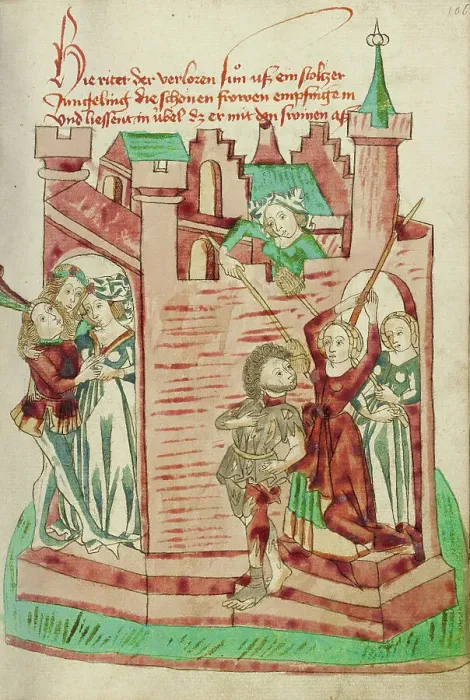 Hie ritet der verloren sun uß ein stoltzer
Jungeling die schönen frowen empfinge in
Und liessent in übel dz er mit den swinen aß